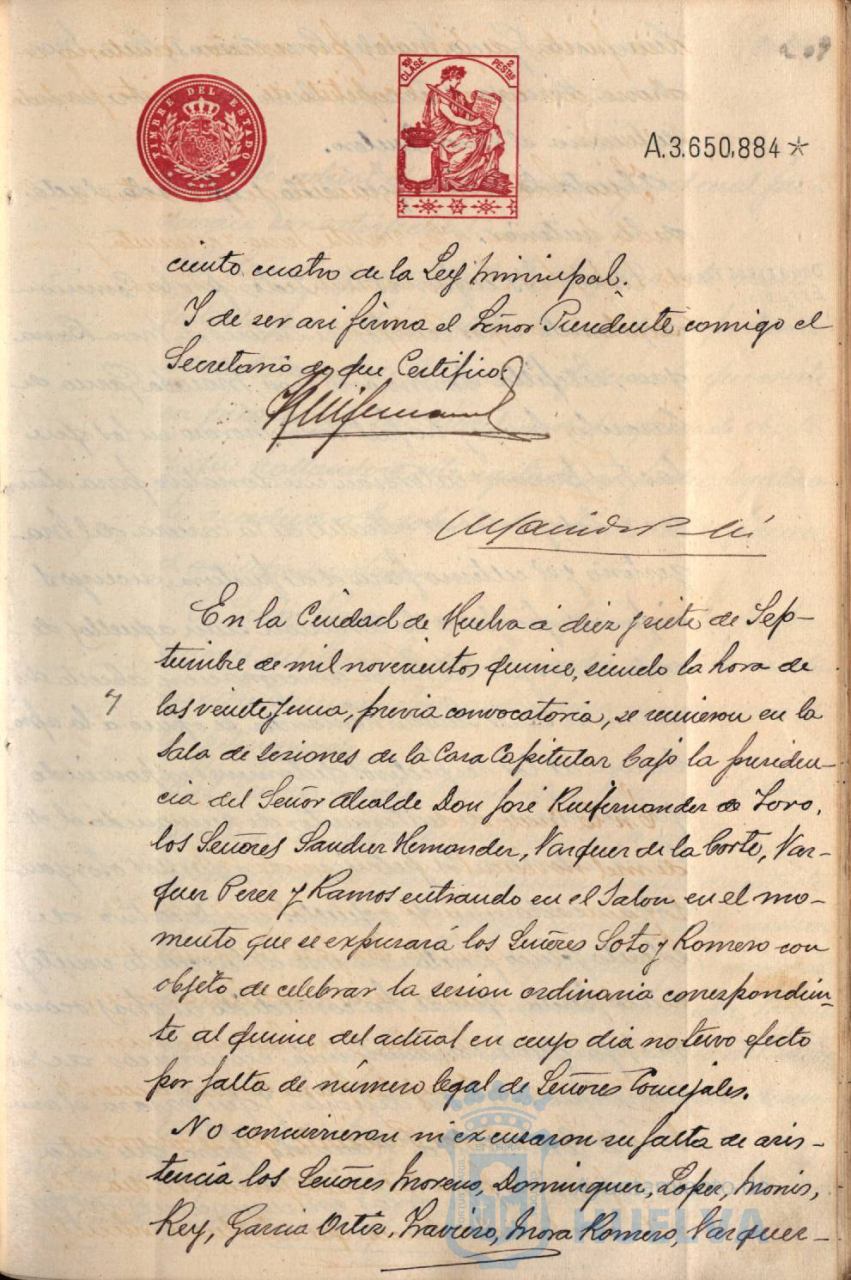 209
TIMBRE DEL ESTADO
10ª CLASE 2 PESETAS
A.3.650,884*
ciento cuatro de la Ley Municipal.
Y de ser asi firma el Señor Presidente conmigo el
Secretario de que Certifico.
En la Ciudad de Huelva á diez y siete de Sep-
tiembre de mil novecientos quince, siendo la hora de
las veinte y una, previa convocatoria, se reunieron en la
Sala de Sesiones de la Casa Capitular bajo la presiden-
cia del Señor Alcalde Don José Ruifernandez de Toro,
los Señores Sanchez Hernandez, Vazquez de la Corte, Vaz-
quez Perez y Ramos entrando en el Salon en el mo-
mento que se expresará los Señores Soto y Romero con
objeto de celebrar la sesion ordinaria correspondien-
te al quince del actual en cuyo dia no tuvo efecto
por falta de número legal de Señores Concejales.
No concurrieron ni excusaron su falta de asis-
tencia los Señores Moreno, Dominguez, Lopez, Monis,
Rey, Garcia Ortiz, Traviero, Mora Romero, Vazquez
HUELVA